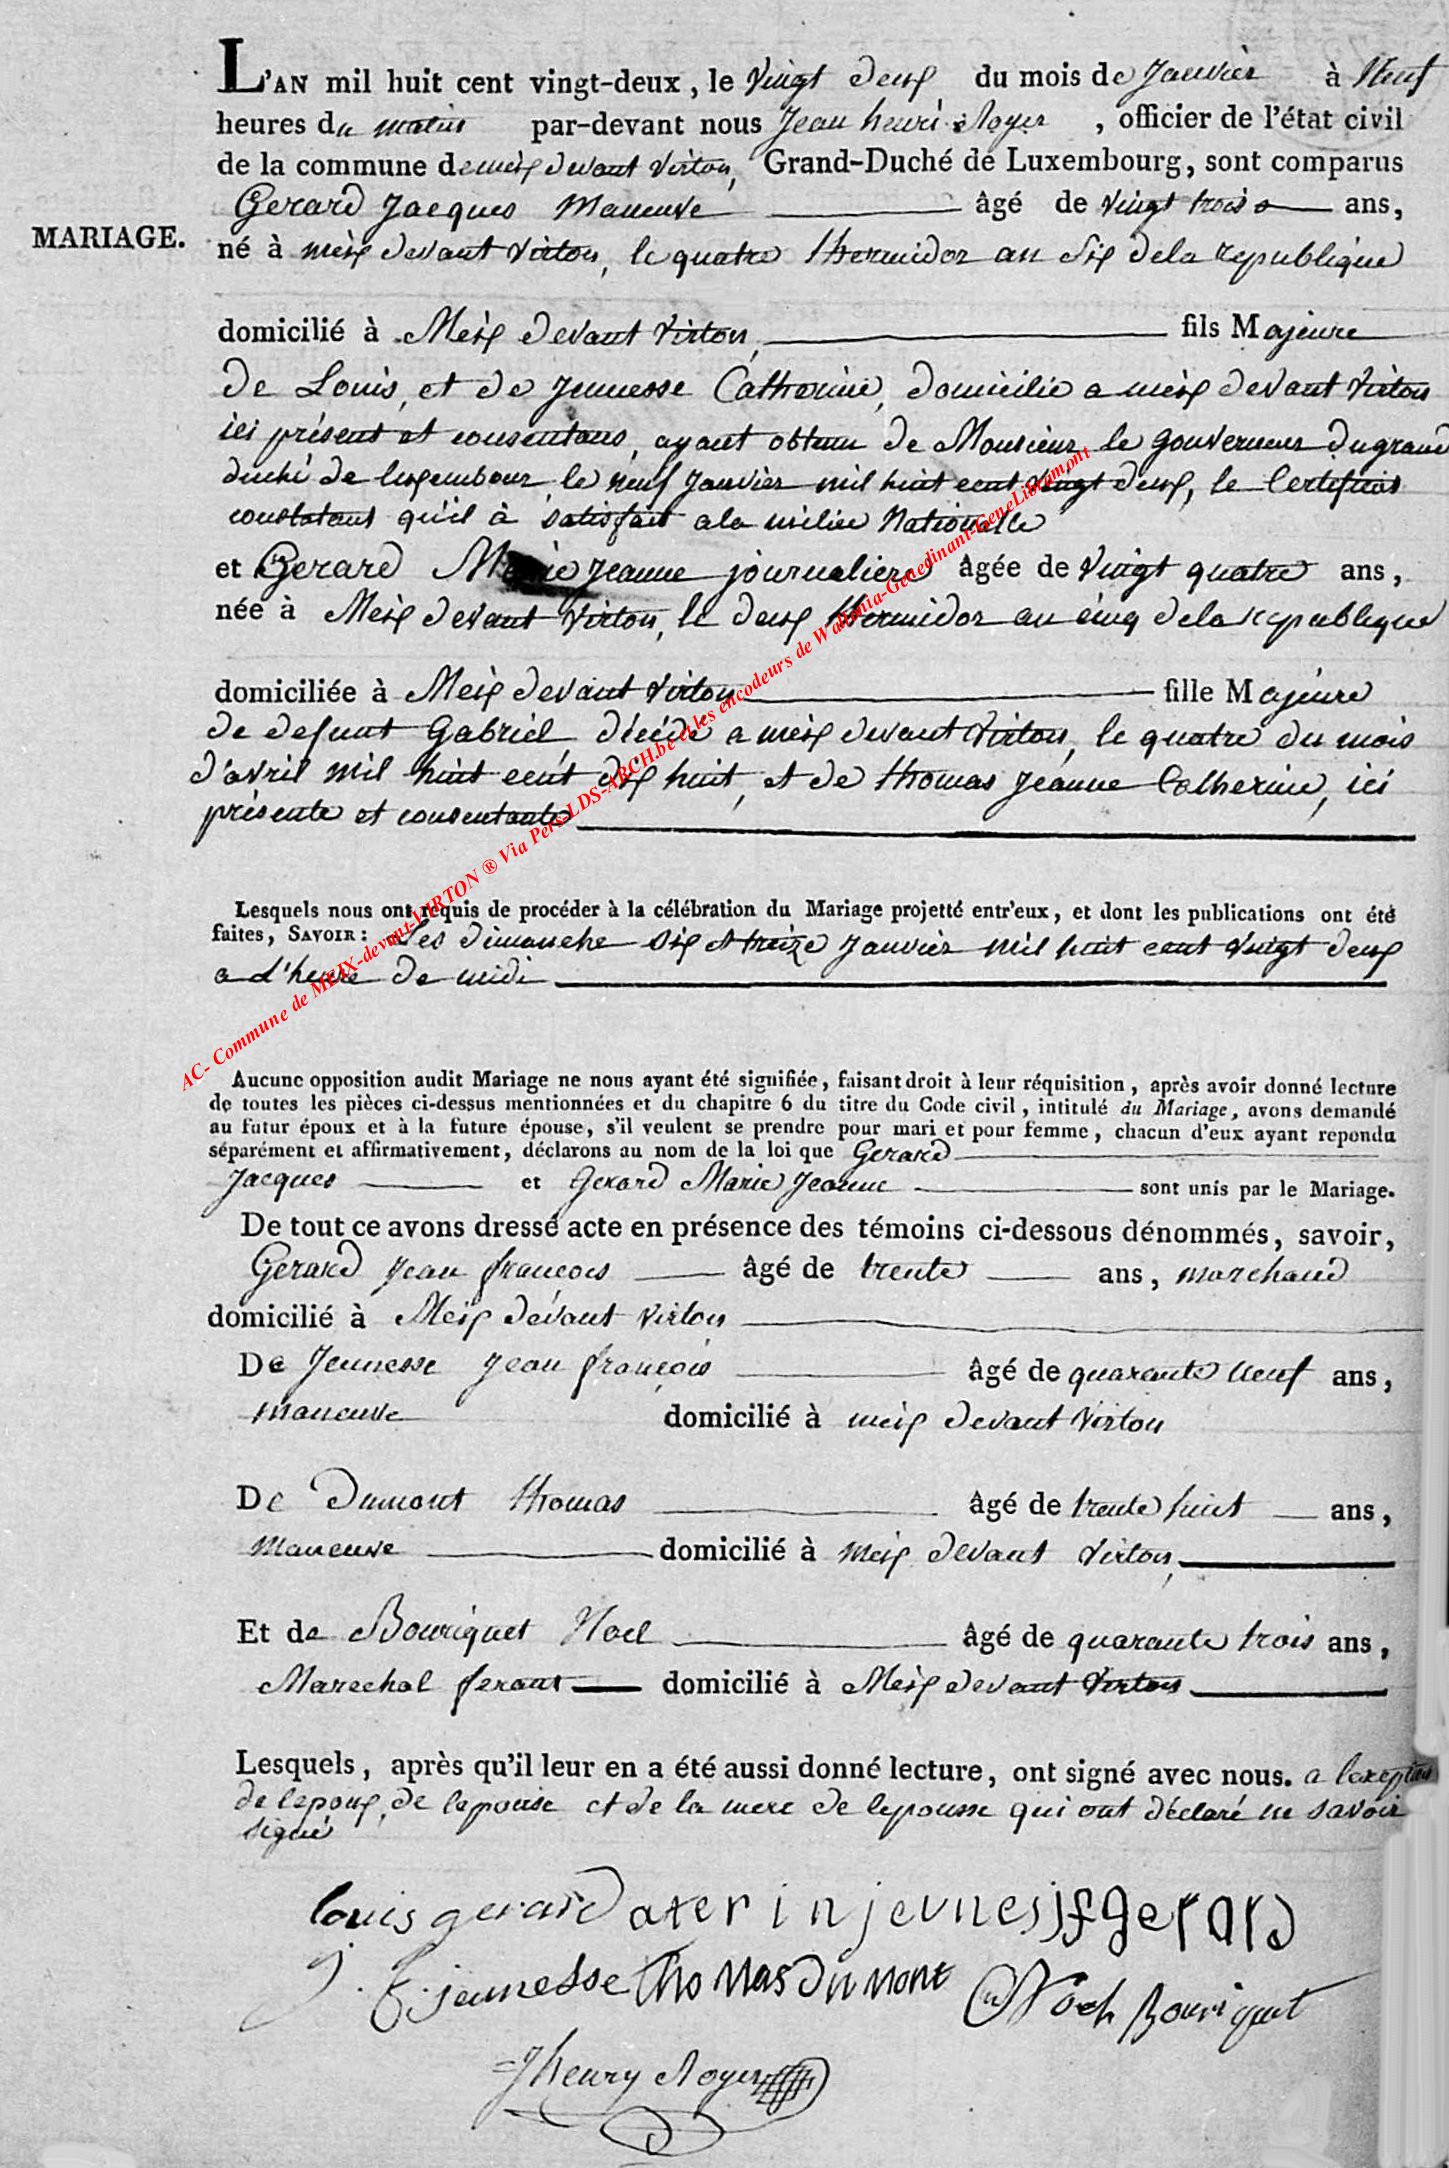 L'AN mil huit cent vingt-deux, le vingt deux du mois de Janvier à Neuf
heures du matin par-devant nous Jean henri Royer, officier de l'état civil
de la commune de meix devant virton, Grand-Duché de Luxembourg, sont comparus
Gerard Jacques Maneuve âgé de vingt trois ans,
MARIAGE.
né à meix devant virton, le quatre thermidor an Six dela republique
domicilié à Meix devant virton, fils Majeure
de Louis, et de Jeunesse Catherine, domicilie a meix devant virton
ici présent et consentans, ayant obtenu de Monsieur le gouverneur du grand
duché de luxembour, le neuf Janvier mil huit cent vingt deux, le Certificat
constatant qu'il à satisfait ala milice Nationalle
et Gerard Marie Jeanne journaliere âgée de vingt quatre ans,
née à Meix devant virton, le deux thermidor an cinq dela republique
domiciliée à Meix devant virton fille Majeure
de defunt Gabriel, décédé a meix devant virton, le quatre du mois
d'avril mil huit cent dix huit, et de thomas Jeanne Catherine, ici
présente et consentante
Lesquels nous ont requis de procéder à la célébration du Mariage projetté entr'eux, et dont les publications ont été
faites, SAVOIR: Les dimanche six et treize Janvier mil huit cent vingt deux
a l'heure de midi
Aucune opposition audit Mariage ne nous ayant été signifiée, faisant droit à leur réquisition, après avoir donné lecture
de toutes les pièces ci-dessus mentionnées et du chapitre 6 du titre du Code civil, intitulé du Mariage, avons demandé
au futur époux et à la future épouse, s'il veulent se prendre pour mari et pour femme, chacun d'eux ayant repondu
séparément et affirmativement, déclarons au nom de la loi que Gerard
Jacques et Gerard Marie Jeanne sont unis par le Mariage.
De tout ce avons dressé acte en présence des témoins ci-dessous dénommés, savoir,
Gerard Jean françois âgé de trente ans, marchand
domicilié à Meix devant virton
De Jeunesse Jean françois âgé de quarante neuf ans,
maneuve domicilié à meix devant virton
De Dumont thomas âgé de trente huit ans,
Maneuve domicilié à Meix devant virton,
Et de Bouriquet Noel âgé de quarante trois ans,
Marechal ferant domicilié à Meix devant virton
Lesquels, après qu'il leur en a été aussi donné lecture, ont signé avec nous. a lexeption
de lepoux, de lepouse et de la mere de lepousse qui ont déclaré ne savoir
signé
louis gerard aterin jeunes jfgerard
J. f. jeunesse thomas dumont Noel Bouriquet
Jhenry Royer
AC- Commune de MEIX-devant-VIRTON ® Via Pers-LDS-ARCH.be et les encodeurs de Wallonia-Genedinant-GeneLibramont